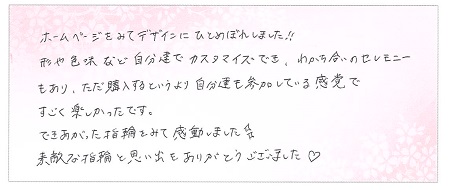 ホームページをみてデザインにひとめぼれしました!!
形や色味など自分達でカスタマイズでき、わかち合いのセレモニー
もあり、ただ購入するというより自分達も参加している感覚で
すごく楽しかったです。
できあがった指輪をみて感動しました
素敵な指輪と思い出をありがとうございました♡